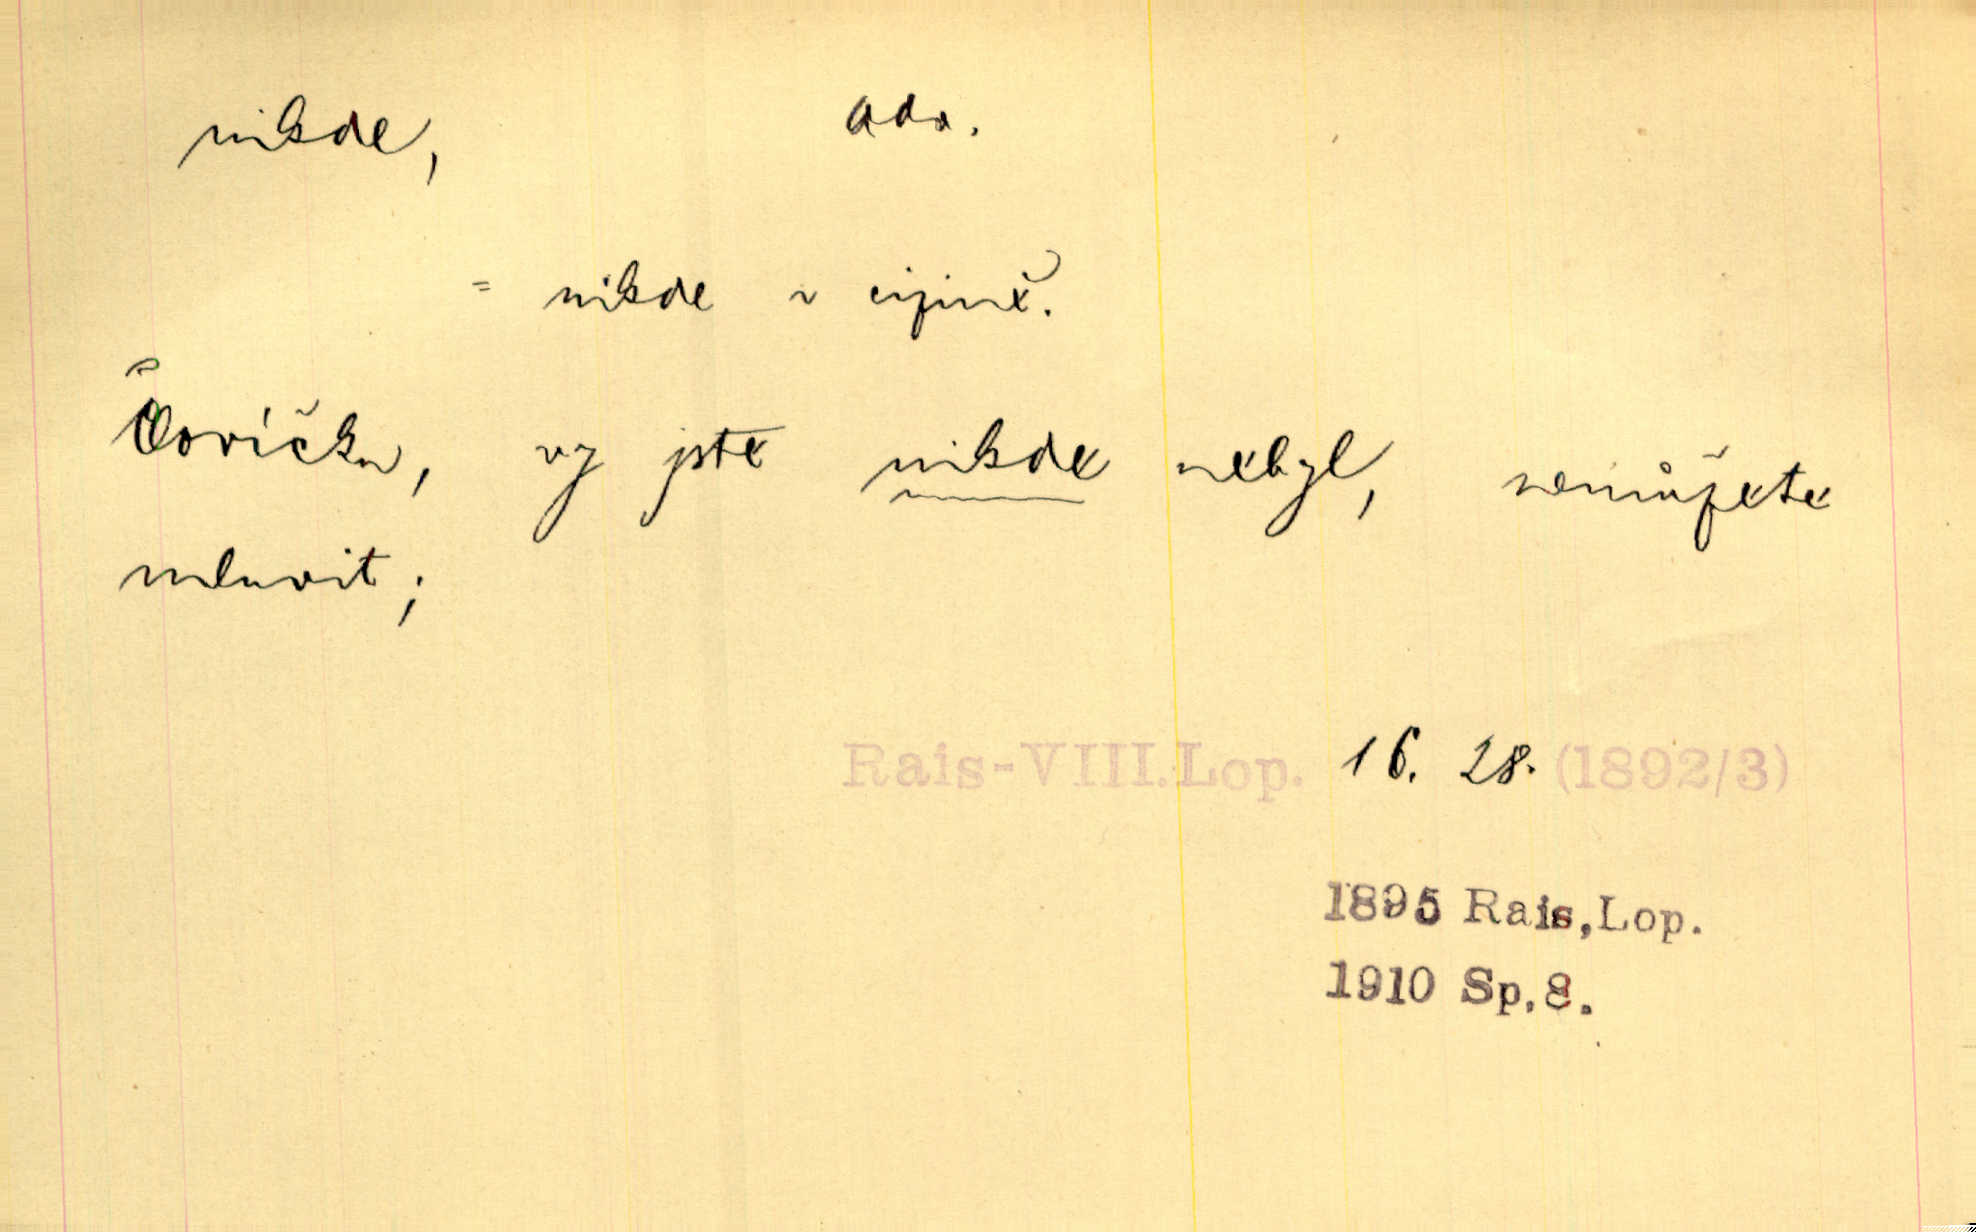 nikde, adv.
= nikde v cizině.
Človíčku, vy jste nikde nebyl, nemůžete
mluvit;
Rais-VIII.Lop. 16. 28. (1892/3)
1895 Rais,Lop.
1910 Sp.8.